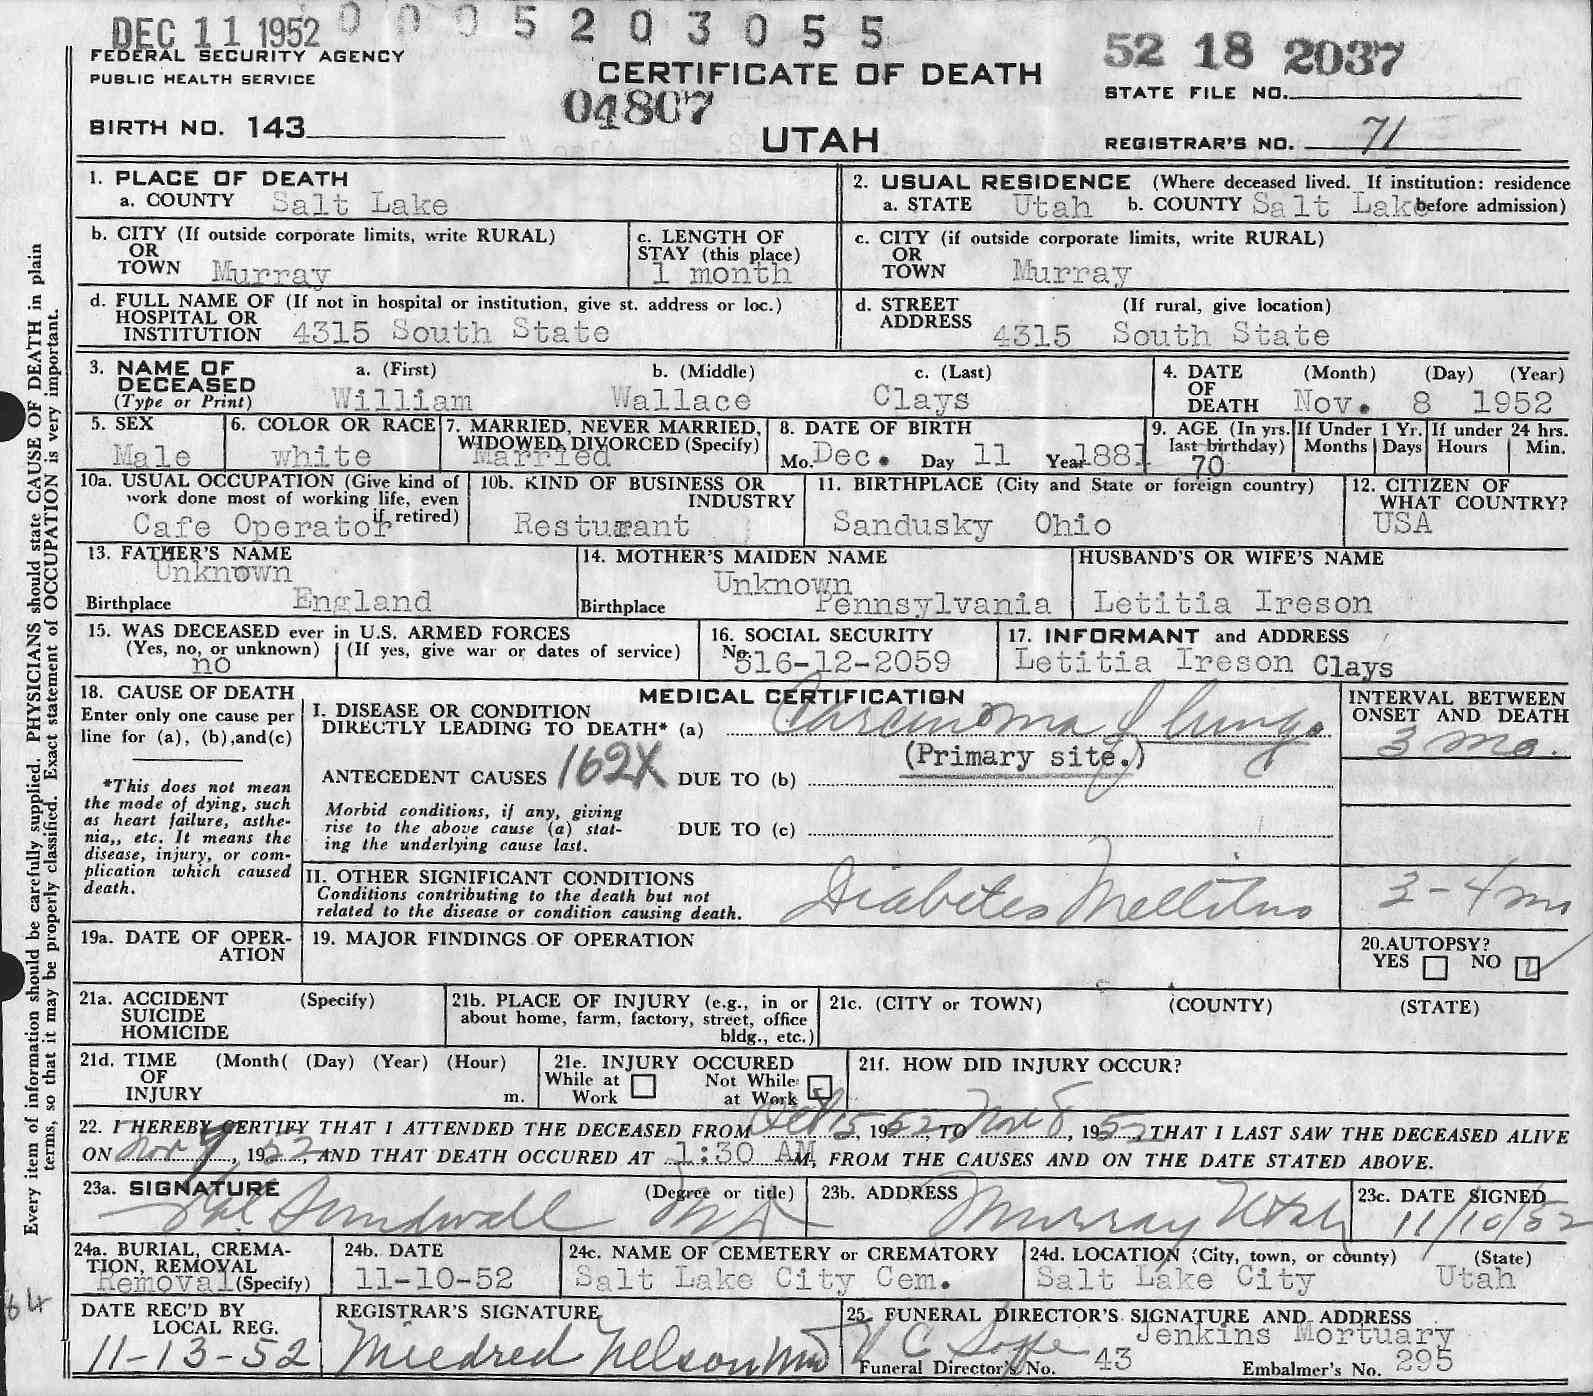 DEC 11 1952 0005203055
FEDERAL SECURITY AGENCY
PUBLIC HEALTH SERVICE
CERTIFICATE OF DEATH
52 18 2037
STATE FILE NO.
04807
BIRTH NO. 143
UTAH
REGISTRAR'S NO. 71
1. PLACE OF DEATH
a. COUNTY Salt Lake
2. USUAL RESIDENCE (Where deceased lived. If institution: residence
a. STATE Utah b. COUNTY Salt Lake before admission)
b. CITY (If outside corporate limits, write RURAL)
OR
TOWN Murray
c. LENGTH OF
STAY (this place)
1 month
c. CITY (if outside corporate limits, write RURAL)
OR
TOWN Murray
d. FULL NAME OF (If not in hospital or institution, give st. address or loc.)
HOSPITAL OR
INSTITUTION 4315 South State
d. STREET (If rural, give location)
ADDRESS 4315 South State
3. NAME OF a. (First) b. (Middle) c. (Last)
DECEASED
(Type or Print) William Wallace Clays
4. DATE (Month) (Day) (Year)
OF
DEATH Nov. 8 1952
5. SEX
Male
6. COLOR OR RACE
white
7. MARRIED, NEVER MARRIED,
WIDOWED, DIVORCED (Specify)
Married
8. DATE OF BIRTH
Mo. Dec. Day 11 Year 1881
9. AGE (In yrs.
last birthday)
70
If Under 1 Yr.
Months Days
If under 24 hrs.
Hours Min.
10a. USUAL OCCUPATION (Give kind of
work done most of working life, even
if retired)
Cafe Operator
10b. KIND OF BUSINESS OR
INDUSTRY
Resturant
11. BIRTHPLACE (City and State or foreign country)
Sandusky Ohio
12. CITIZEN OF
WHAT COUNTRY?
USA
13. FATHER'S NAME
Unknown
Birthplace England
14. MOTHER'S MAIDEN NAME
Unknown
Birthplace Pennsylvania
HUSBAND'S OR WIFE'S NAME
Letitia Ireson
15. WAS DECEASED ever in U.S. ARMED FORCES
(Yes, no, or unknown) (If yes, give war or dates of service)
no
16. SOCIAL SECURITY
No. 516-12-2059
17. INFORMANT and ADDRESS
Letitia Ireson Clays
18. CAUSE OF DEATH
Enter only one cause per
line for (a), (b),and(c)
*This does not mean
the mode of dying, such
as heart failure, asthe-
nia,, etc. It means the
disease, injury, or com-
plication which caused
death.
MEDICAL CERTIFICATION
I. DISEASE OR CONDITION
DIRECTLY LEADING TO DEATH* (a) Carcinoma of lungs
(Primary site.)
ANTECEDENT CAUSES 162X DUE TO (b)
Morbid conditions, if any, giving
rise to the above cause (a) stat-
ing the underlying cause last.
DUE TO (c)
INTERVAL BETWEEN
ONSET AND DEATH
3 mo.
II. OTHER SIGNIFICANT CONDITIONS
Conditions contributing to the death but not
related to the disease or condition causing death.
Diabetes Mellitus 3-4 mo
19a. DATE OF OPER-
ATION
19. MAJOR FINDINGS OF OPERATION
20.AUTOPSY?
YES NO
21a. ACCIDENT (Specify)
SUICIDE
HOMICIDE
21b. PLACE OF INJURY (e.g., in or
about home, farm, factory, street, office
bldg., etc.)
21c. (CITY or TOWN) (COUNTY) (STATE)
21d. TIME (Month( (Day) (Year) (Hour)
OF
INJURY m.
21e. INJURY OCCURED
While at Not While
Work at Work
21f. HOW DID INJURY OCCUR?
22. I HEREBY CERTIFY THAT I ATTENDED THE DECEASED FROM 15, 1952, TO Nov 8, 1952, THAT I LAST SAW THE DECEASED ALIVE
ON Nov 7, 1952, AND THAT DEATH OCCURED AT 1:30 AM, FROM THE CAUSES AND ON THE DATE STATED ABOVE.
23a. SIGNATURE (Degree or title)
Sundwall MD
23b. ADDRESS
Murray Utah
23c. DATE SIGNED
11/10/52
24a. BURIAL, CREMA-
TION, REMOVAL
Removal (Specify)
24b. DATE
11-10-52
24c. NAME OF CEMETERY or CREMATORY
Salt Lake City Cem.
24d. LOCATION (City, town, or county) (State)
Salt Lake City Utah
DATE REC'D BY
LOCAL REG.
11-13-52
REGISTRAR'S SIGNATURE
Mildred Nelson
25. FUNERAL DIRECTOR'S SIGNATURE AND ADDRESS
Jenkins Mortuary
Funeral Director's No. 43 Embalmer's No. 295
Every item of information should be carefully supplied. PHYSICIANS should state CAUSE OF DEATH in plain
terms, so that it may be properly classified. Exact statement of OCCUPATION is very important.
64